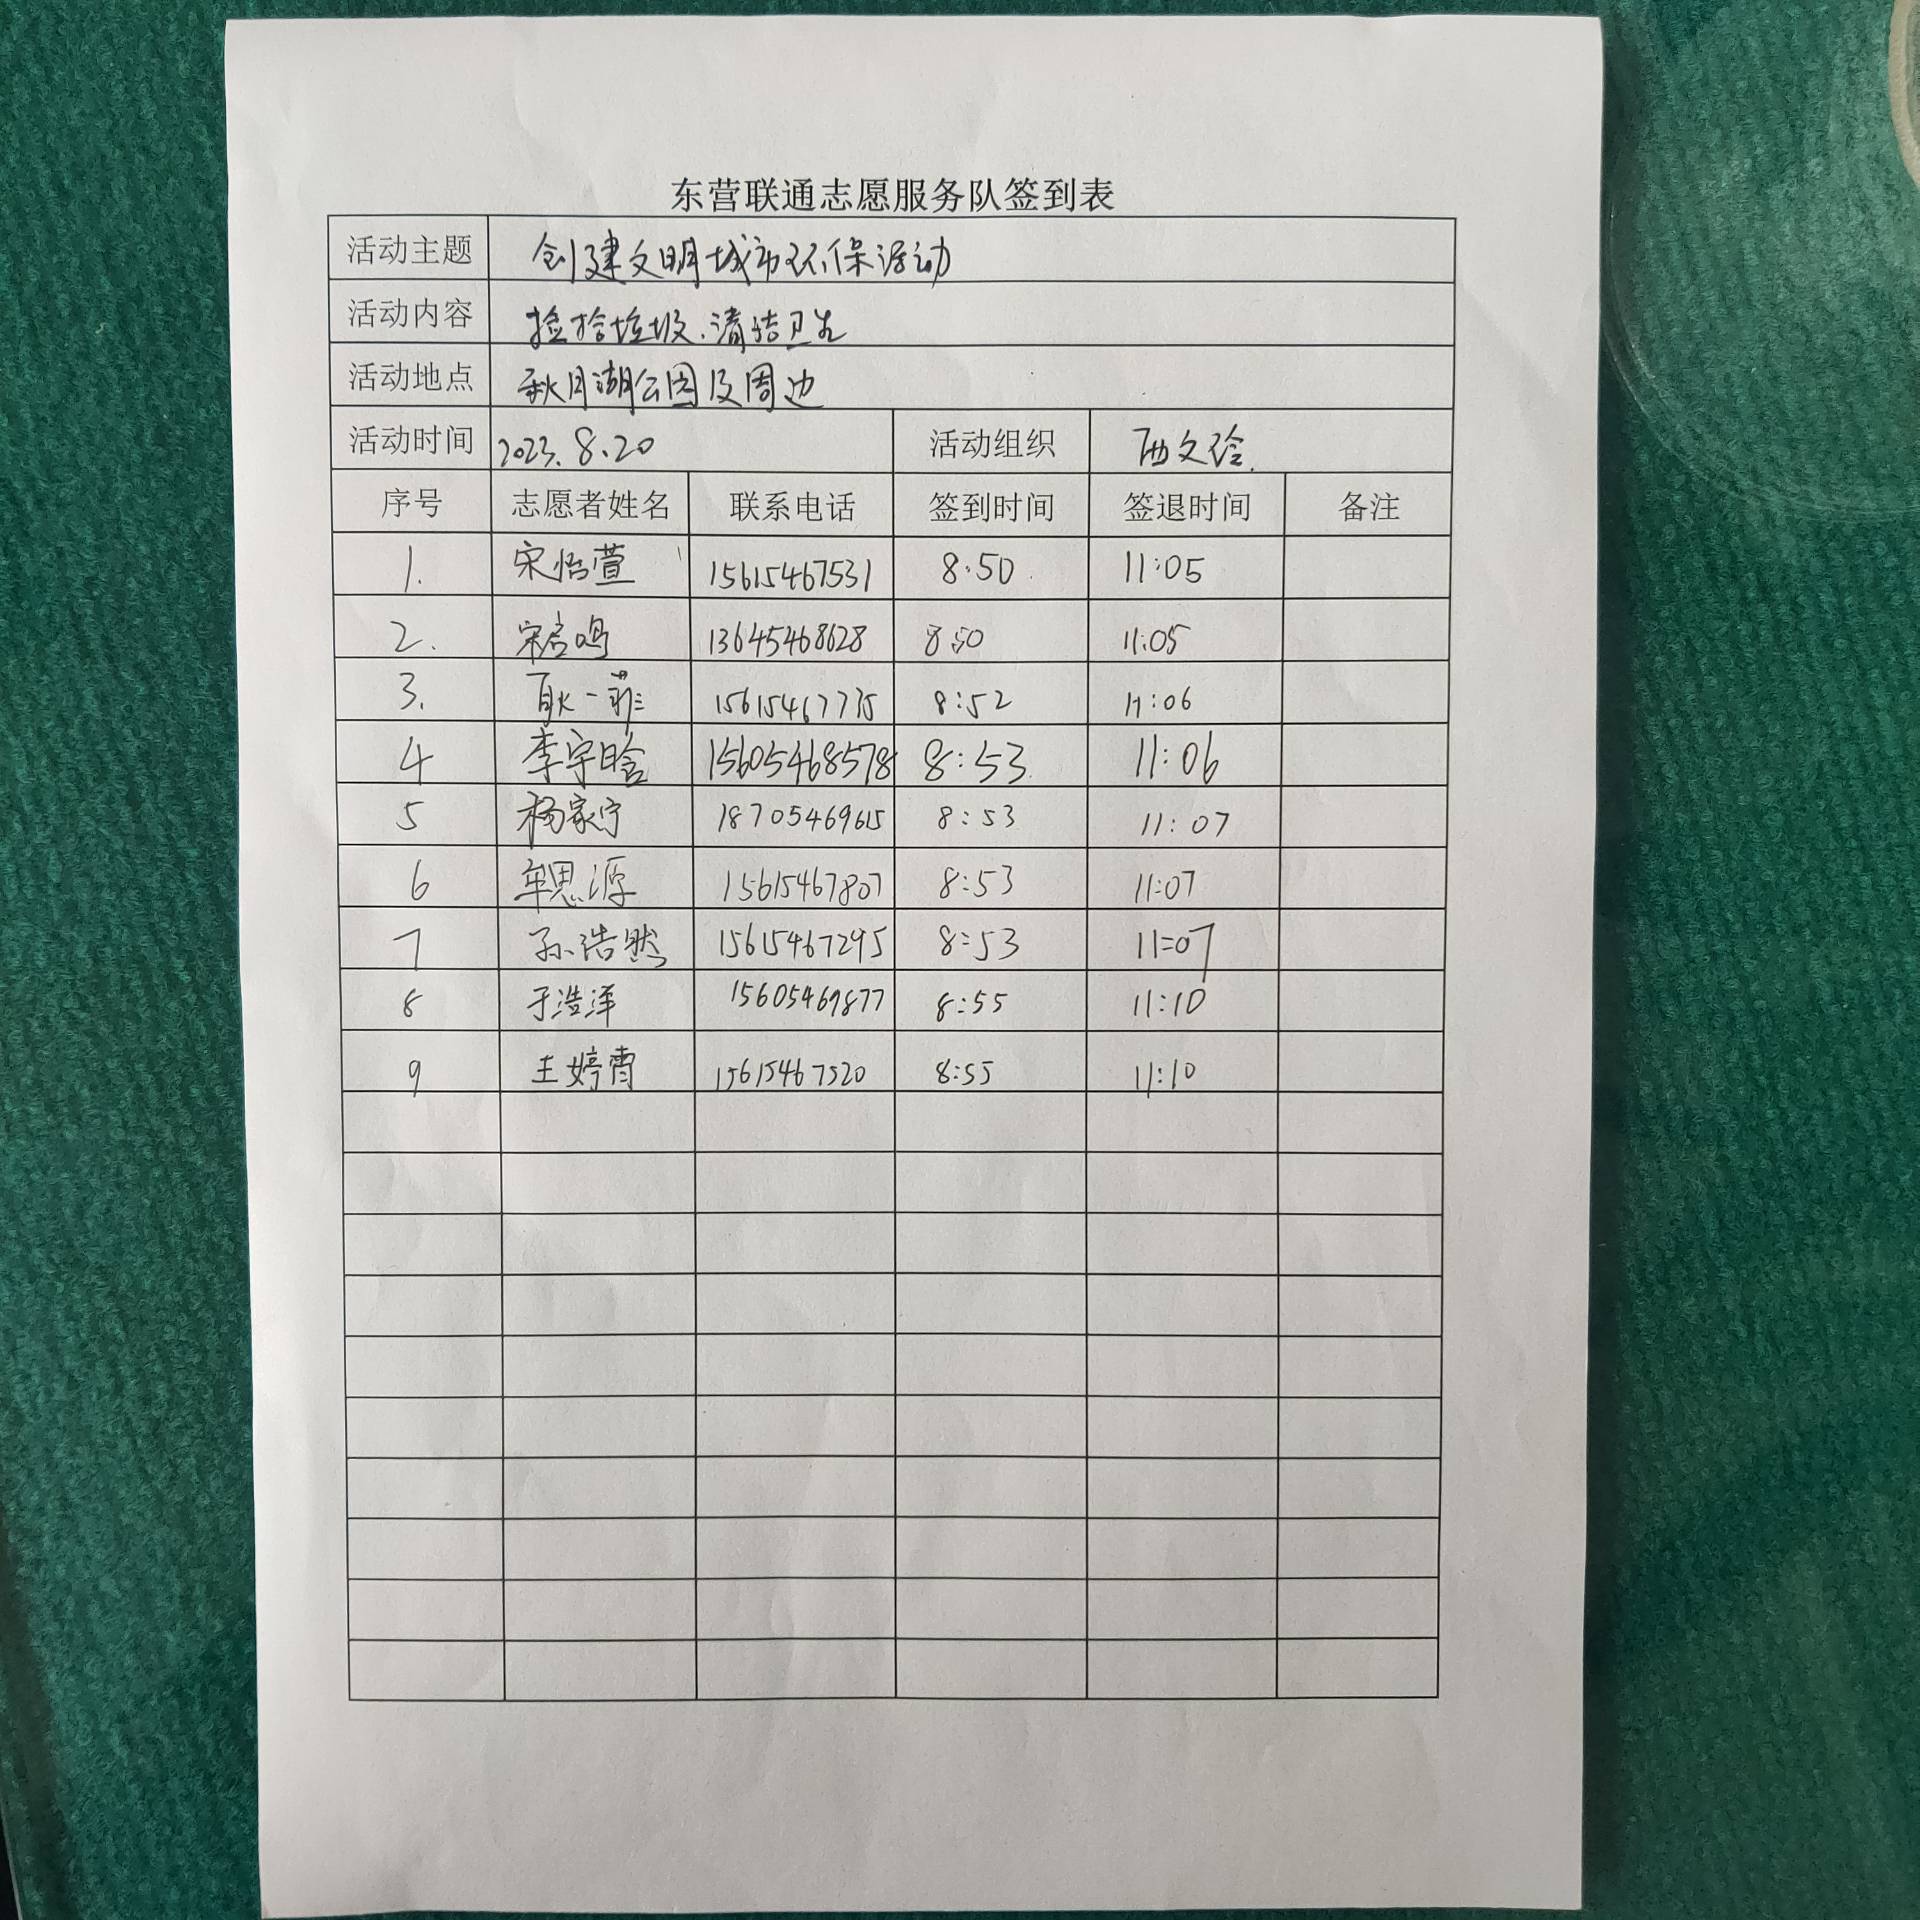 东营联通志愿服务队签到表
活动主题 创建文明城市环保活动
活动内容 捡拾垃圾.清洁卫生
活动地点 秋月湖公园及周边
活动时间 2023.8.20 活动组织 西文
序号 志愿者姓名 联系电话 签到时间 签退时间 备注
1. 宋怡萱 15615467531 8:50 11:05
2. 宋启鸣 13645468628 8:50 11:05
3. 耿一菲 15615467735 8:52 11:06
4 李宇晗 15605468578 8:53 11:06
5 杨家宁 18705469615 8:53 11:07
6 牟思源 15615467807 8:53 11:07
7 孙浩然 15615467295 8:53 11:07
8 于浩洋 15605469877 8:55 11:10
9 王婷霄 15615467520 8:55 11:10